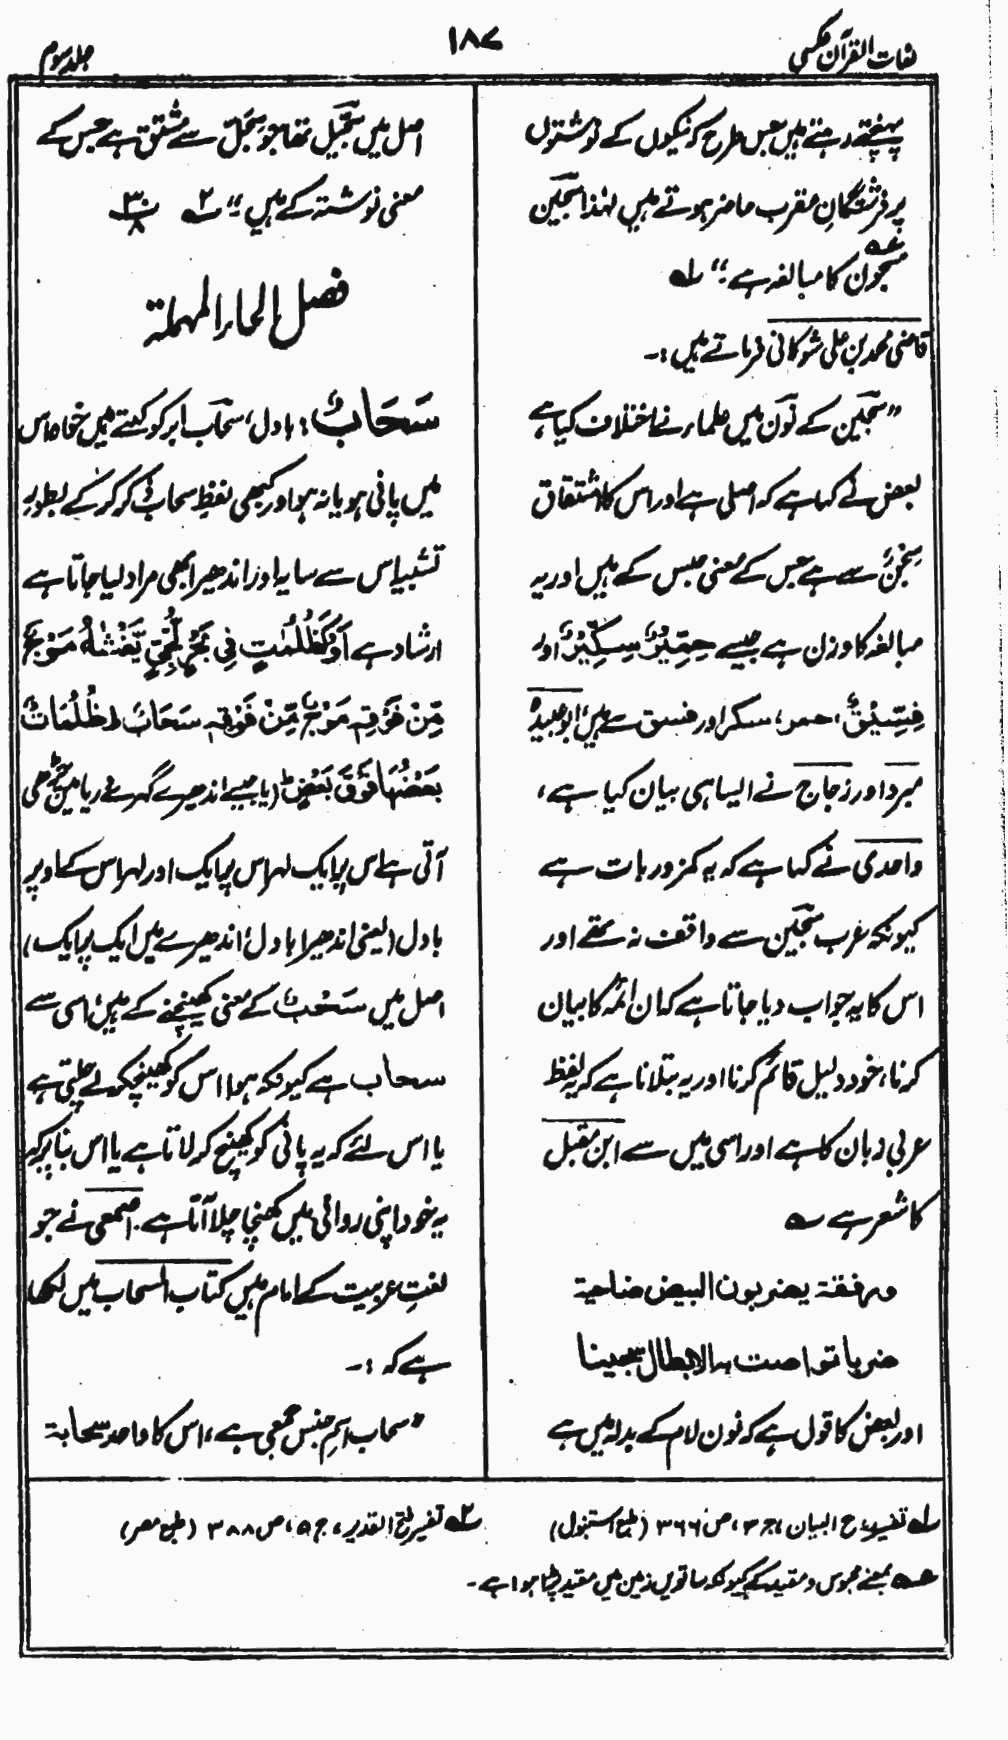 لغات القرآن عکسی
۱۸۷
جلد سوم
پہنچتے رہتے ہیں جس طرح کہ نیکوں کے نوشتوں
پر فرشتگانِ مقرب حاضر ہوتے ہیں لہٰذا سجین
مسجون کا مبالغہ ہے"
قاضی محمد بن علی شوکانی فرماتے ہیں :۔
"سجین کے نون میں علماء نے اختلاف کیا ہے
بعض نے کہا ہے کہ اصلی ہے اور اس کا اشتقاق
سِجْنٌ سے ہے جس کے معنی حبس کے ہیں اور یہ
مبالغہ کا وزن ہے جیسے خِمِّیْرٌ سِکِّیْرٌ اور
فِسِّیْقٌ، خمر، سکر اور فسق سے ہیں، ابو عبیدہ
مبرد اور زجاج نے ایسا ہی بیان کیا ہے،
واحدی نے کہا ہے کہ یہ کمزور بات ہے
کیونکہ عرب سجین سے واقف نہ تھے اور
اس کا یہ جواب دیا جاتا ہے کہ ان ائمہ کا بیان
کرنا، خود دلیل قائم کرنا اور یہ بتلانا ہے کہ یہ لفظ
عربی زبان کا ہے اور اسی میں سے ابن مقبل
کا شعر ہے ؎
ورفقة يضربون البيض ضاحية
ضربا تواصت به الابطال سجينا
اور بعض کا قول ہے کہ نون لام کے بدلہ میں ہے
اصل میں سجیل تھا جو سجل سے مشتق ہے جس کے
معنی نوشتہ کے ہیں"۔ ۲؎ ۳۰/۸
فصل الحاء المهملة
سَحَابٌ : بادل، سحاب ابر کو کہتے ہیں خواہ اس
میں پانی ہو یا نہ ہو اور کبھی لفظِ سحاب ذکر کر کے بطورِ
تشبیہ اس سے سایہ اور اندھیرا بھی مراد لیا جاتا ہے
ارشاد ہے اَوْ کَظُلُمٰتٍ فِیْ بَحْرٍ لُّجِّیٍّ یَّغْشٰهُ مَوْجٌ
مِّنْ فَوْقِهٖ مَوْجٌ مِّنْ فَوْقِهٖ سَحَابٌ ط ظُلُمَاتٌ
بَعْضُهَا فَوْقَ بَعْضٍ ط (یا جیسے اندھیرے گہرے دریا میں چڑھی
آتی ہے اس پر ایک لہر اس پر ایک اور لہر اس کے اوپر
بادل (یعنی اندھیرا بادل، اندھیرے ہیں ایک پر ایک)
اصل میں سَحْبٌ کے معنی کھینچنے کے ہیں، اسی سے
سحاب ہے کیونکہ ہوا اس کو کھینچ کر لے چلتی ہے
یا اس لئے کہ یہ پانی کو کھینچ کر لاتا ہے یا اس بنا پر کہ
یہ خود اپنی روانی میں کھنچا چلا آتا ہے۔ اصمعی نے جو
لغتِ عربیت کے امام ہیں کتاب السحاب میں لکھا
ہے کہ :۔
"سحاب اسمِ جنس جمعی ہے، اس کا واحد سحابۃ
۱؎ تفسیر روح البیان، ج ۴، ص ۳۶۶ (طبع استنبول)
۲؎ تفسیر فتح القدیر، ج ۵، ص ۳۸۸ (طبع مصر)
عہ بمعنی محبوس و مقید کے کیونکہ ساتویں زمین میں مقید پڑا ہوا ہے۔